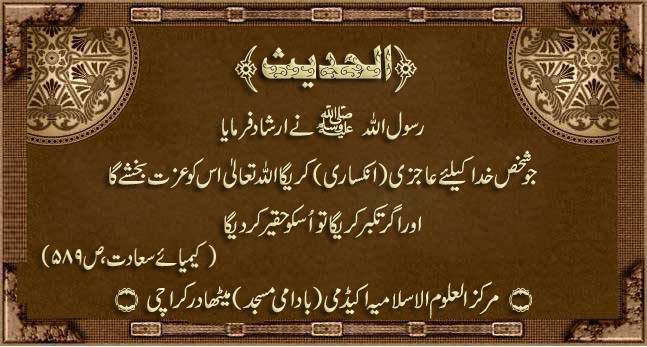 ﴿الحدیث﴾
رسول اللہ ﷺ نے ارشاد فرمایا
جو شخص خدا کیلئے عاجزی (انکساری) کریگا اللہ تعالیٰ اس کو عزت بخشے گا
اور اگر تکبر کریگا تو اُسکو حقیر کر دیگا
(کیمیائے سعادت، ص ۵۸۹)
مرکز العلوم الاسلامیہ اکیڈمی (بادامی مسجد) میٹھادر کراچی